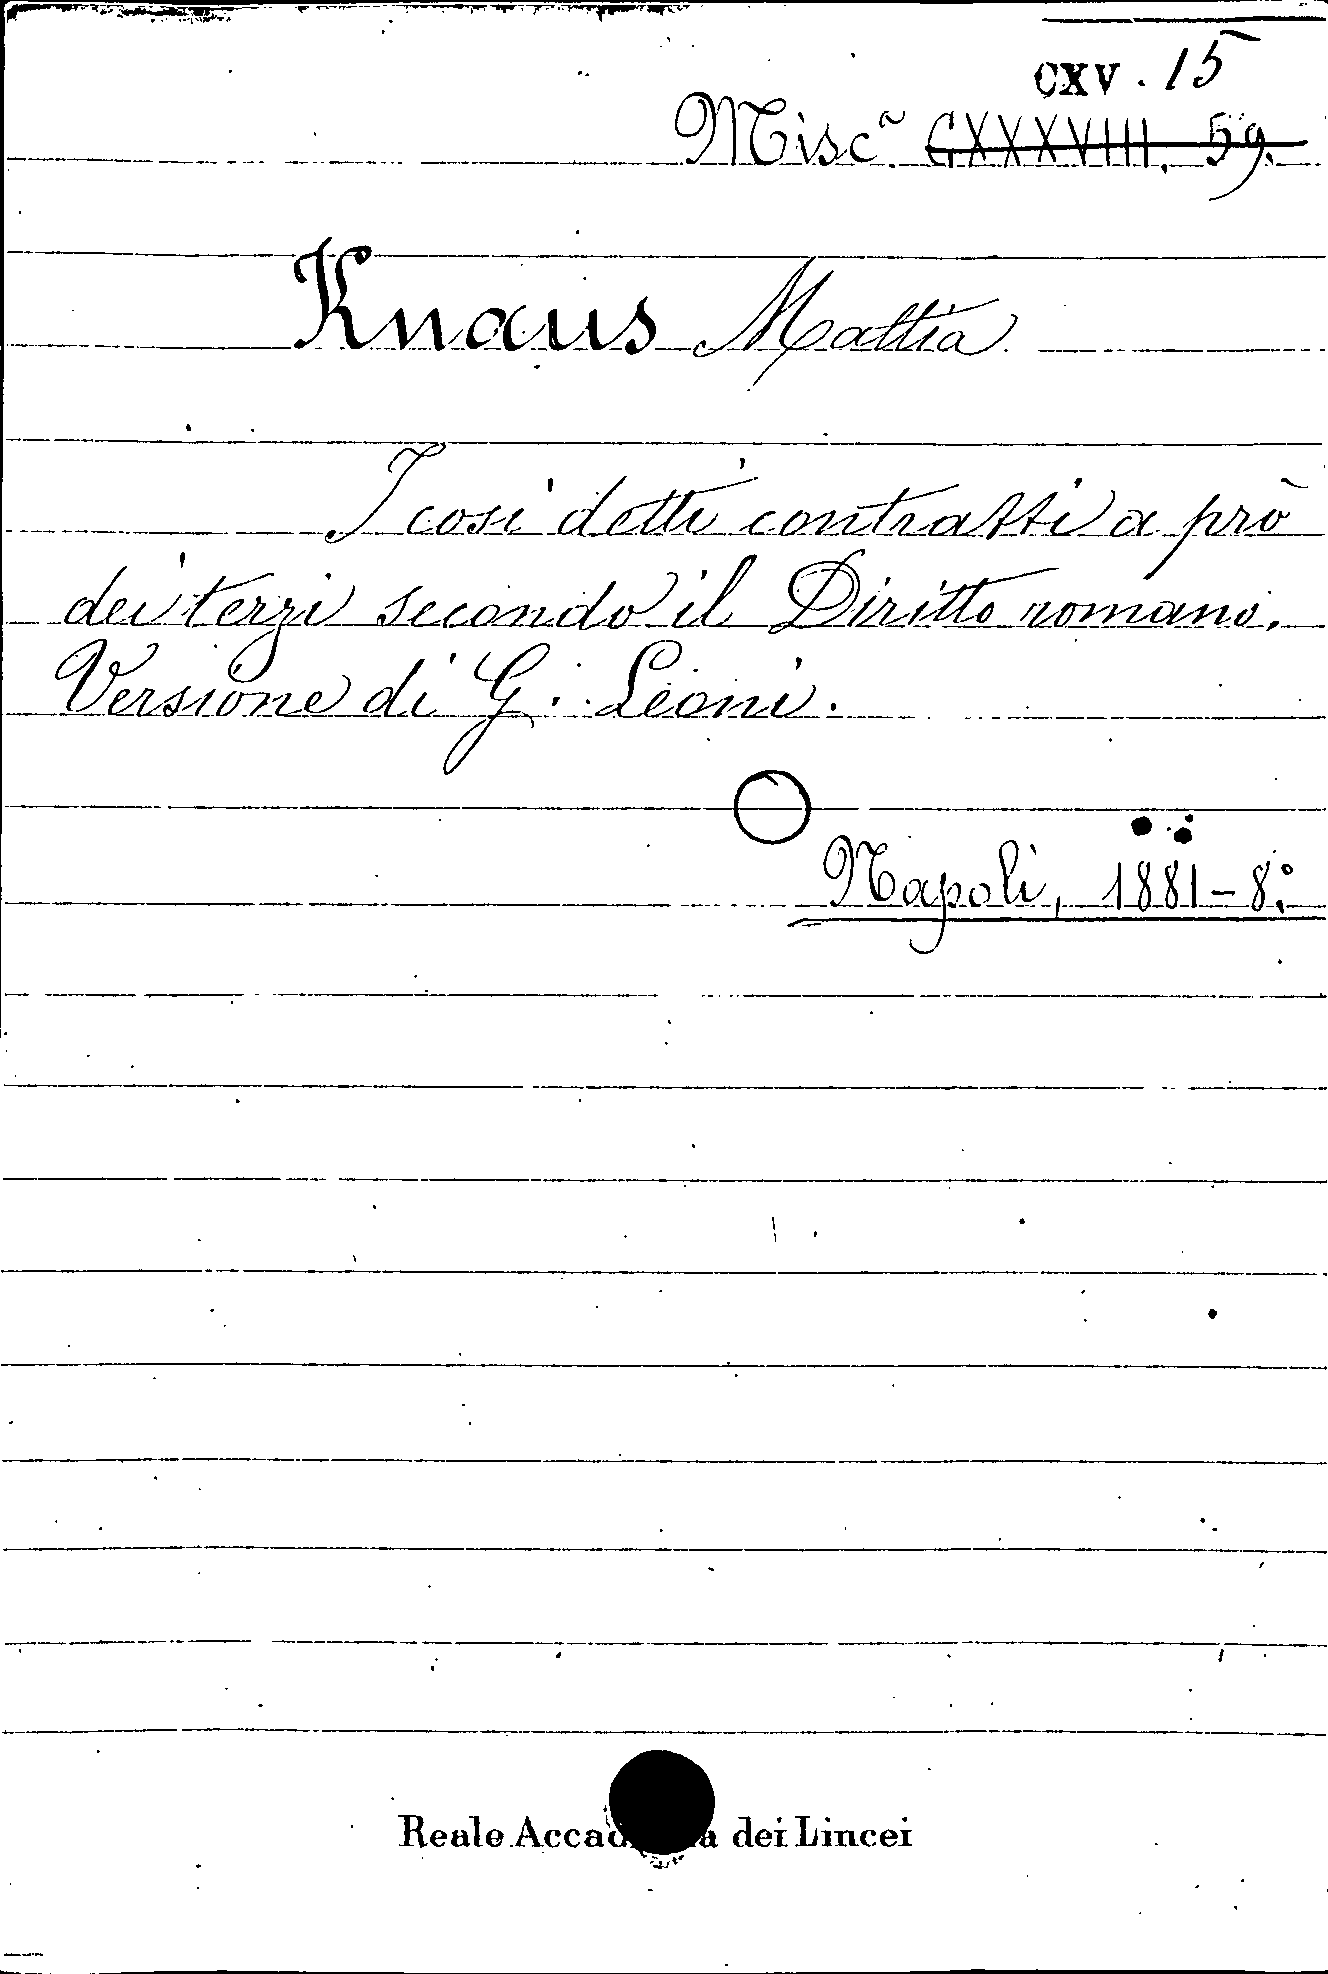 CXV. 15
Misc.ª CXXXVIII. 59.
Knaus Mattia
I cosi detti contratti a prò
dei terzi secondo il Diritto romano.
Versione di G. Leoni.
Napoli, 1881-8.º
Reale Accademia dei Lincei